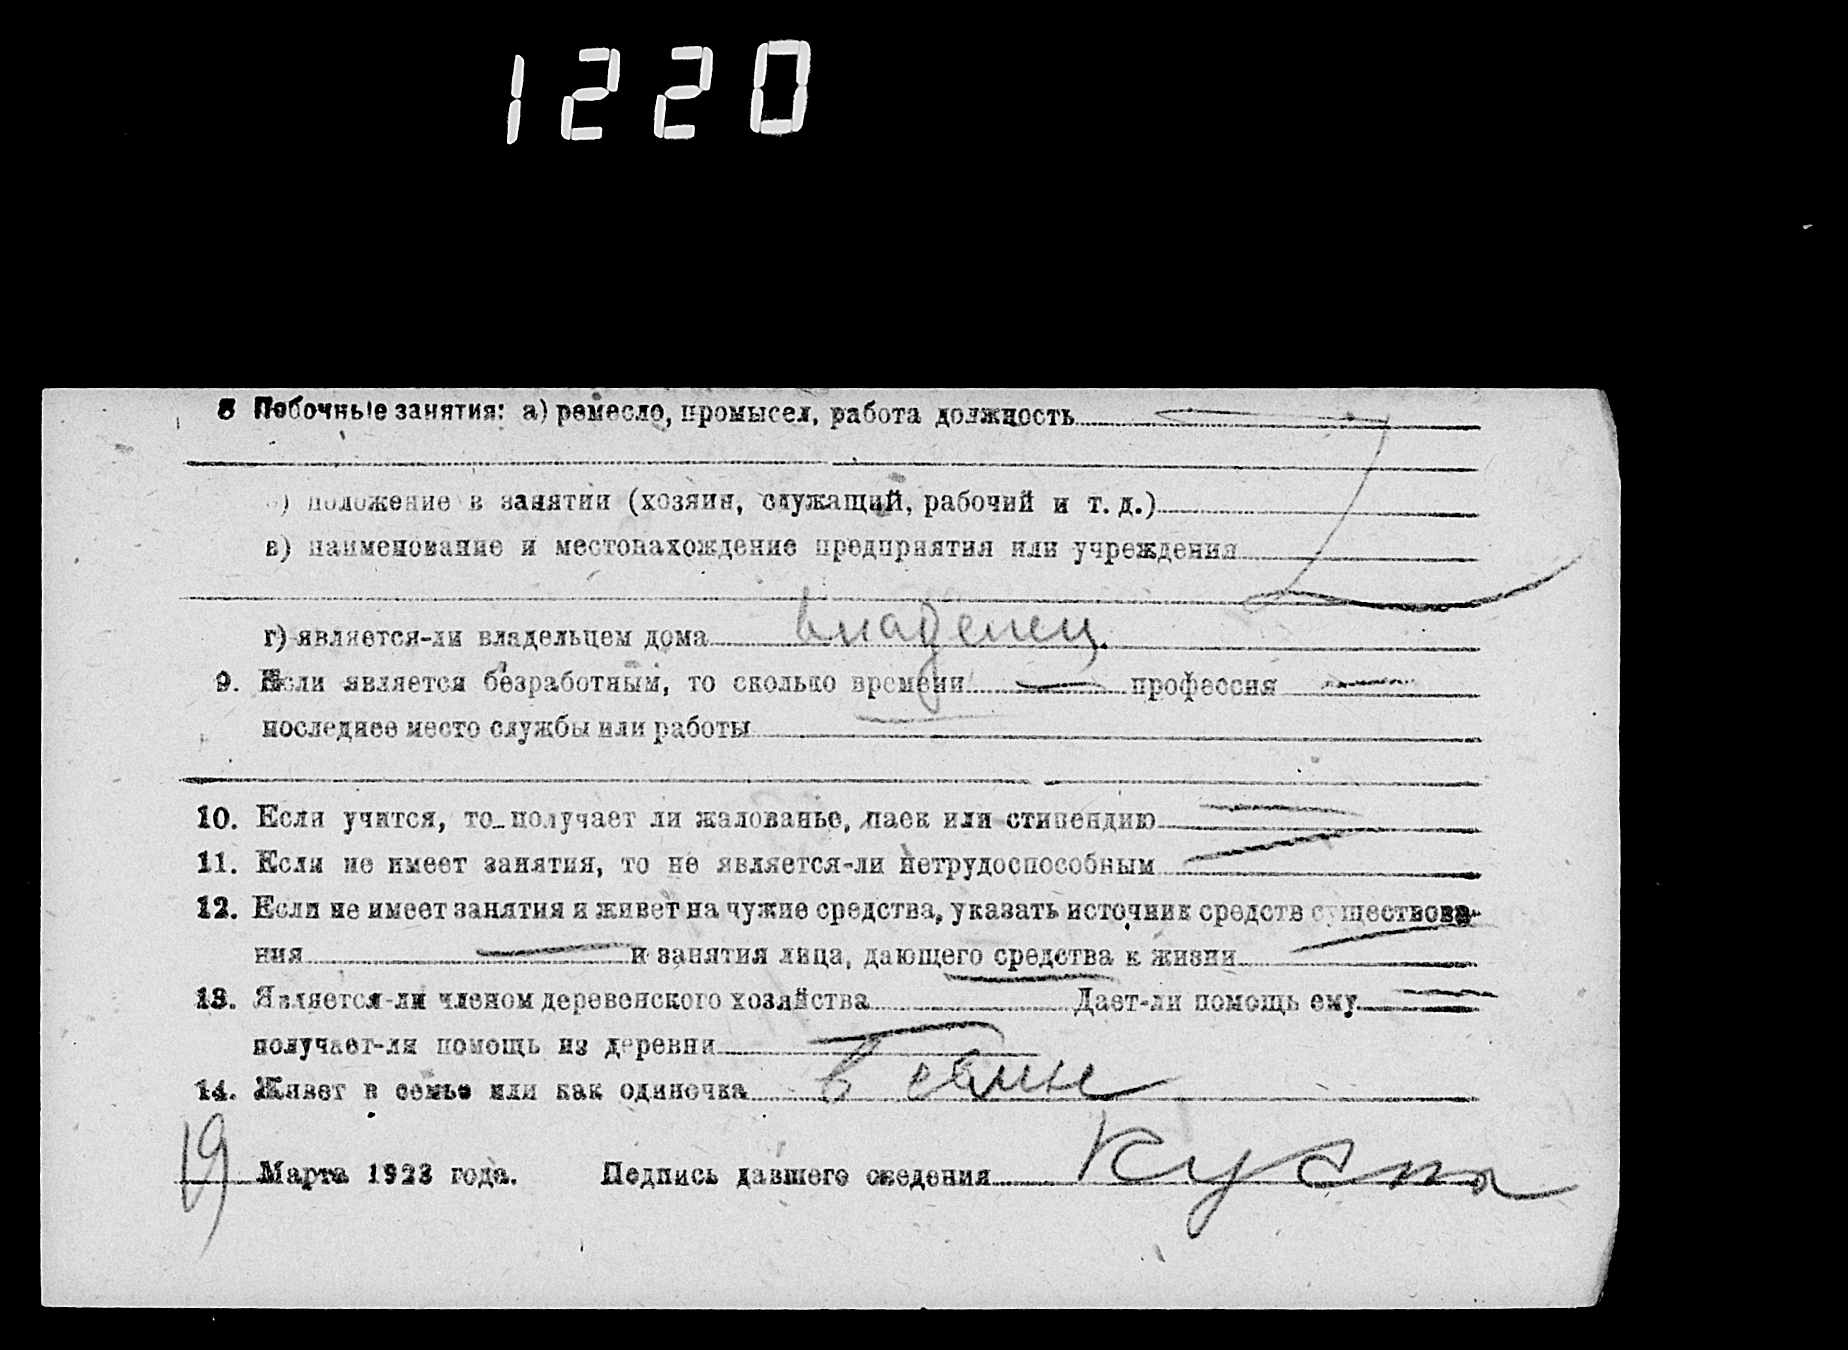 1220
8 Побочные занятия: а) ремесло, промысел, работа должность
б) положение в занятии (хозяин, служащий, рабочий и т. д.)
в) наименование и местонахождение предприятия или учреждения
г) является-ли владельцем дома владелец.
9. Если является безработным, то сколько времени — профессия —
последнее место службы или работы —
10. Если учится, то получает ли жалованье, паек или стипендию —
11. Если не имеет занятия, то не является-ли нетрудоспособным —
12. Если не имеет занятия и живет на чужие средства, указать источник средств существова-
ния — и занятия лица, дающего средства к жизни —
13. Является-ли членом деревенского хозяйства — Дает-ли помощь ему —
получает-ли помощь из деревни —
14. Живет в семье или как одиночка в семье
19 Марта 1923 года. Подпись давшего сведения